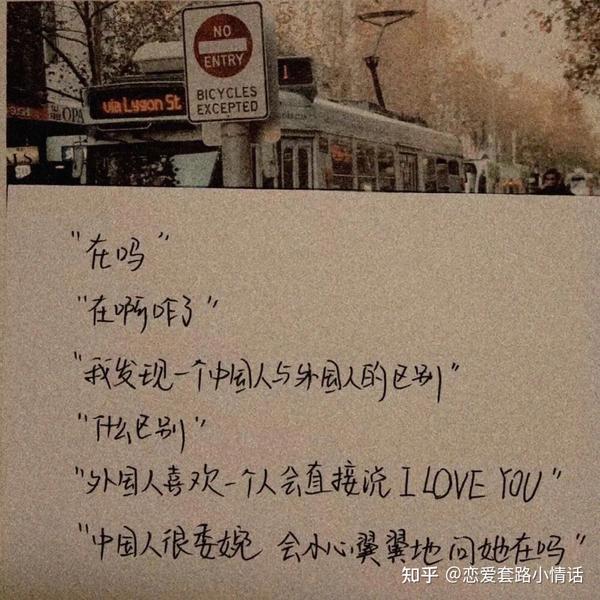 NO
ENTRY
BICYCLES
EXCEPTED
1
via Lygon St
OPA
"在吗"
"在啊咋了"
"我发现一个中国人与外国人的区别"
"什么区别"
"外国人喜欢一个人会直接说 I LOVE YOU"
"中国人很委婉 会小心翼翼地问她在吗"
知乎 @恋爱套路小情话